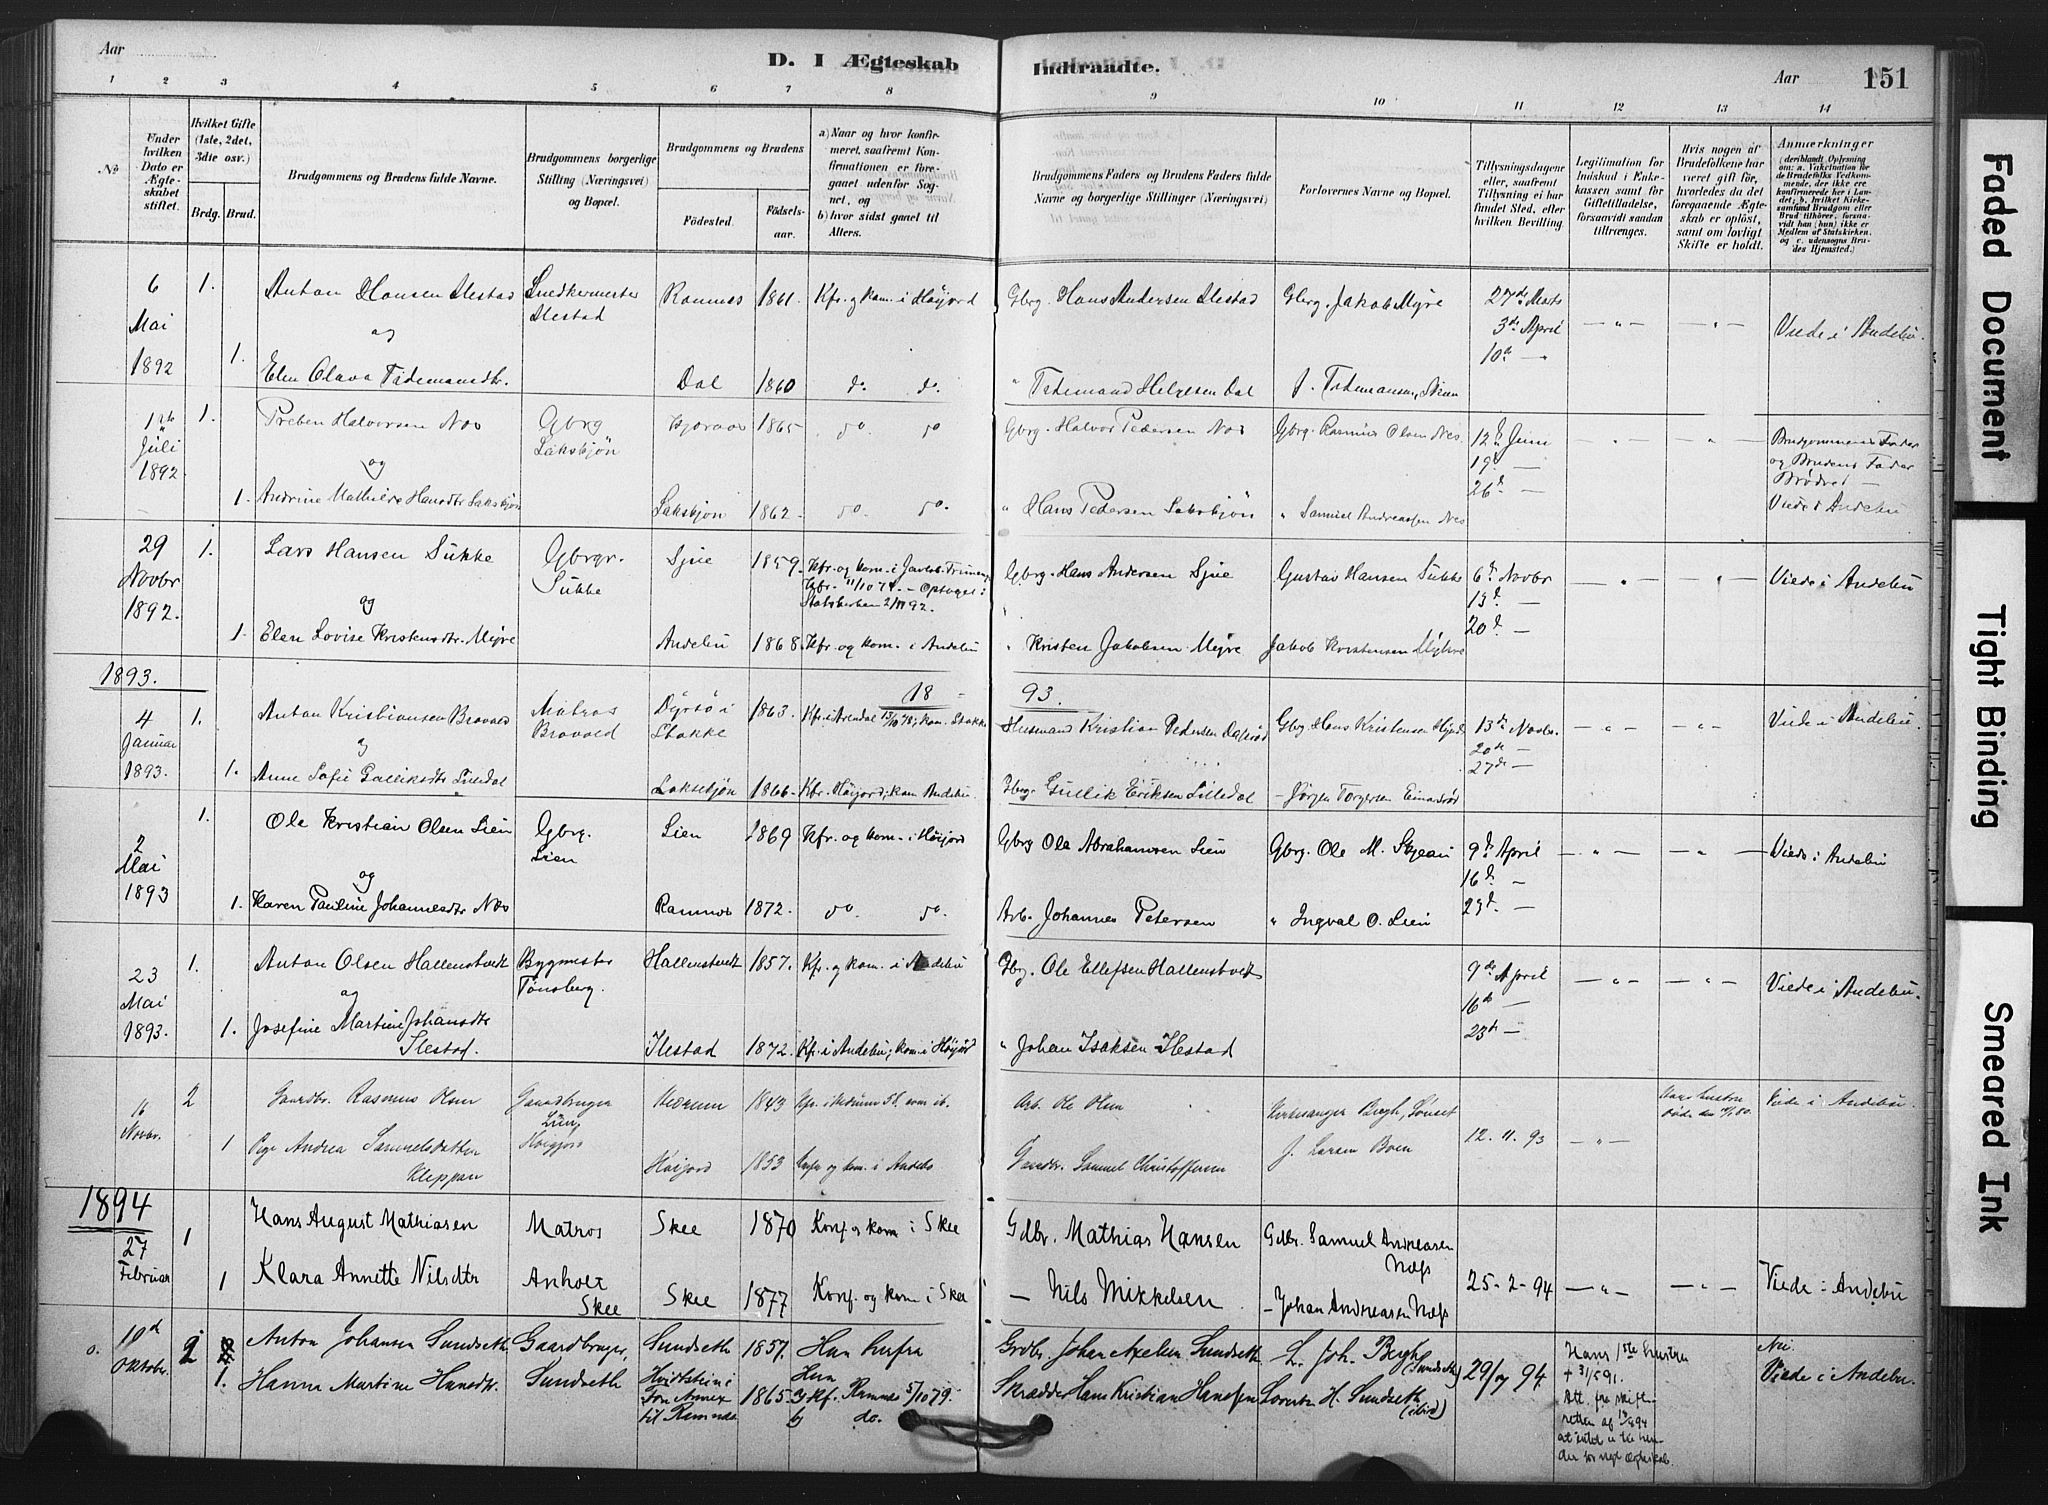 Aar
D. I Ægteskab Indtraadte.
Aar
151
1 2 3 4 5 6 7 8 9 10 11 12 13 14
No
Under hvilken Dato er Ægteskabet stiftet.
Hvilket Gifte (1ste, 2det, 3dte osv.)
Brdg. Brud.
Brudgommens og Brudens fulde Navne.
Brudgommens borgerlige Stilling (Næringsvei) og Bopæl.
Brudgommens og Brudens
Fødested.
Fødselsaar.
a) Naar og hvor konfirmeret, saafremt Konfirmationen er foregaaet udenfor Sognet, og
b) hvor sidst gaaet til Alters.
Brudgommens Faders og Brudens Faders fulde Navne og borgerlige Stillinger (Næringsvei)
Forlovernes Navne og Bopæl.
Tillysningsdagene eller, saafremt Tillysning ei har fundet Sted, efter hvilken Bevilling.
Legitimation for Indskud i Enkekassen samt for Giftetilladelse, forsaavidt saadan tiltrænges.
Hvis nogen af Brudefolkene har været gift før, hvorledes da det foregaaende Ægteskab er opløst, samt om lovligt Skifte er holdt.
Anmærkninger (deriblandt Oplysning om: a. Vakcination for de Brudefolks Vedkommende, der ikke ere konfirmerede her i Landet; b. hvilket Kirkesamfund Brudgom eller Brud tilhører, forsaavidt han (hun) ikke er Medlem af Statskirken, og c. udensogns Brudes Hjemsted.)
6 Mai 1892
1. Anton Hansen Ilestad Snedkermester Ilestad Ramnes 1861. Kfr. og kom. i Høijord Gbrg. Hans Andersen Ilestad Gbrg. Jakob Myre 27de Marts 3de April 10de — — " — — " — Viede i Andebu.
og
1. Elen Olava Tidemansdtr. Dal 1860 do. do. " Tidemand Helgesen Dal J. Tidemansen, Skien
Juli 1892
1. Preben Halvorsen Nes Gbrg Laksbjøn 1865 do do Gbrg. Halvor Pedersen Nes Gbrg. Rasmus Olsen Nes 12te Juni 19d — 26d — — " — — " — Brudgommens Fader og Brudens Fader Brødre — Viede i Andebu
og
1. Andrine Mathilde Hansdtr Laksbjøn Laksbjøn 1862. do. do. " Hans Pedersen Laksbjøn " Samuel Andreassen Nes
29 Novbr 1892.
1. Lars Hansen Sukke Gbrgr. Sukke Sjue 1859. Kfr. og kom. i Jarlsb. Frimenigh. 11/10 74. — Optaget i Statskirken 2/11 92. Gbrg. Hans Andersen Sjue Gustav Hansen Sukke 6d Novbr 13d — 20d — — " — — " — Viede i Andebu
og
1. Elen Lovise Kristensdtr. Myre Andebu 1868. Kfr. og kom. i Andebu " Kristen Jakobsen Myre Jakob Kristensen Myhre
1893. 18 93.
4 Januar 1893.
1. Anton Kristiansen Bravald Matros Bravald Dyrsø i Stokke 1863. Kfr. i Arendal; kom. Stokke Husmand Kristian Pedersen Gbrg. Hans Kristensen 13de Novbr. 20de — 27de — — " — — " — Viede i Andebu.
og
1. Anne Sofie Gulliksdtr Lilledal Laksebjøn 1866. Kfr. Høijord; kom Andebu. Gbrg. Gullik Eriksen Lilledal — Jørgen Torgersen Einarsrød
2 Mai 1893
1. Ole Kristian Olsen Lien Gbrg. Lien Lien 1869 Kfr. og kom. i Høijord Gbrg Ole Abrahamsen Lien Gbrg. Ole M. Skjeau 9d April 16d — 23d — — " — — " — Viede i Andebu
og
1. Karen Pauline Johannesdtr Nes Ramnes 1872. do. do. Arb. Johannes Petersen " Ingval O. Lien
23 Mai 1893.
1. Anton Olsen Hallenstvedt Bygmester Tønsberg. Hallenstvedt 1857. Kfr. og kom. i Andebu Gbrg. Ole Ellefsen Hallenstvedt 9de April 16de — 23de — — " — — " — Viede i Andebu.
og
1. Josefine Martine Johansdtr Ilestad. Ilestad 1872. Kfr. i Andebu; kom. i Høijord " Johan Isaksen Ilestad
16 Novbr.
2 Gaardbr. Rasmus Olsen Gaardbruger Lien, Høigjord Hedrum 1843 Kfr. i Hedrum 58. kom ib. Arb. Ole Kirkesanger Bergh, 12.11.93 — " — Viede i Andebu.
1 Pige Andrea Samuelsdatter Kleppan Høijord 1853 Konfr og kom. i Andebu Gaardbr. Samuel Christoffersen J. Larsen Boen
1894
27 Februar
1 Hans August Mathiasen Matros Skee 1870 Konf og kom i Skee Gdbr. Mathias Hansen Gdbr. Samuel Andreasen Næss 25-2-94 — " — — " — Viede i Andebu
1 Klara Annette Nilsdtr Anholt Skee Skee 1877 Konf. og kom i Skee — Nils Mikkelsen — Johan Andreasen Næss
o. 10d Oktober.
2 Anton Johansen Sundseth Gaardbruger, Sundseth Sundseth 1857. Han herfra Grdbr. Johan Axelsen Sundseth L. Joh. Bergh (Sundseth) 29/9 94. Hans 1ste hustru + 31/5 91. Att. fra skifteretten af Nei Viede i Andebu.
1. Hanna Martine Hansdtr. Hvidstein i Fon Annex til Ramnes 1865. Hun a) Kf. Ramnes 5/10 79. b) do. Skrædder Hans Kristian Hanssen Lorentz H. Sundseth (ibid)
Faded Document
Tight Binding
Smeared Ink